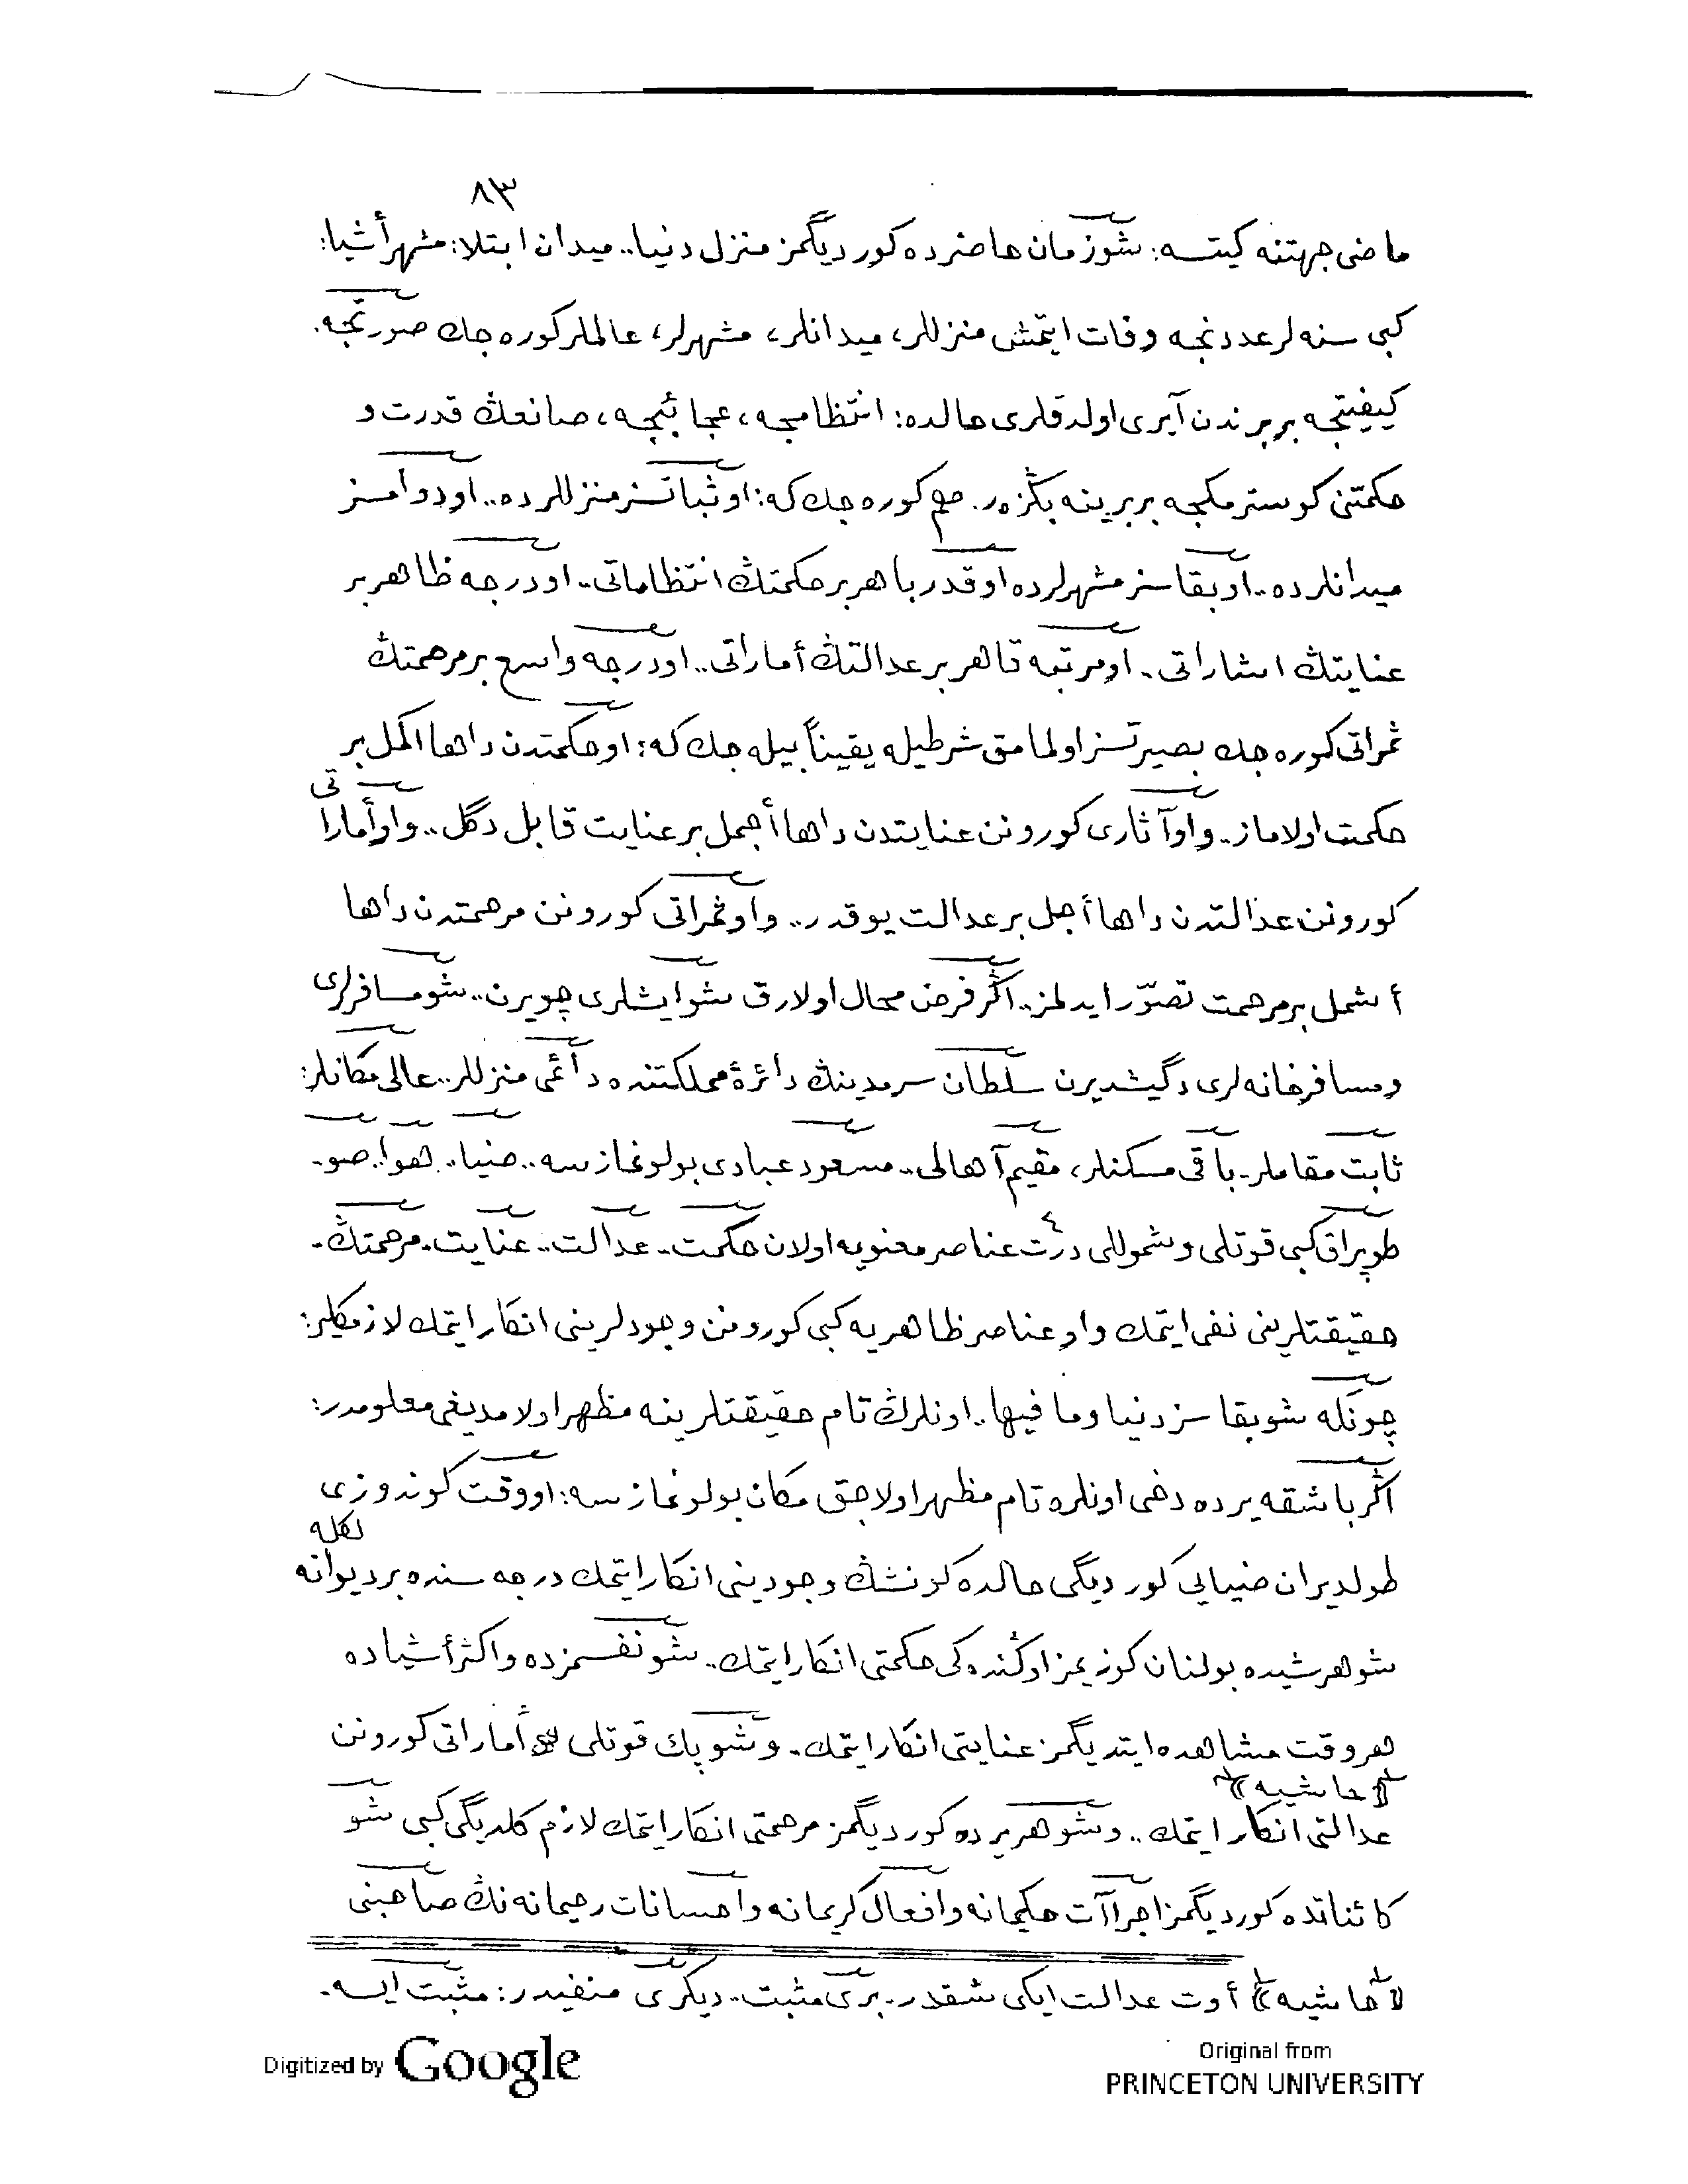 ٨٣
ماضى جهتنه كيتسه: شو زمان حاضرده كورديگمز منزل دنيا.. ميدان ابتلا: مشهر أشيا:
كبى سنه لر عددنجه وفات ايتمش منزللر، ميدانلر، مشهرلر، عالملر كوره جك صورتجه.
كيفيتجه بربرندن آيرى اولدقلرى حالده: انتظامجه، عجائبجه، صانعڭ قدرت و
حكمتنى كوسترمكجه بربرينه بڭزەر. هم كوره جك كه: او ثباتسز منزللرده.. او دوامسز
ميدانلرده.. او بقاسز مشهرلرده او قدر باهر بر حكمتڭ انتظاماتى.. او درجه ظاهر بر
عنايتڭ اشاراتى.. او مرتبه قاهر بر عدالتڭ أماراتى.. او درجه واسع بر مرحمتڭ
ثمراتى كوره جك بصيرتسز اولمامق شرطيله يقيناً بيله جك كه: او حكمتدن داها اكمل بر
حكمت اولاماز.. و او آثارى كورونن عنايتدن داها أجمل بر عنايت قابل دگل.. و او أماراتى
كورونن عدالتدن داها أجل بر عدالت يوقدر.. و او ثمراتى كورونن مرحمتدن داها
أشمل بر مرحمت تصوّر ايدلمز.. اگر فرض محال اولارق شو ايشلرى چويرن.. شو مسافرلرى
و مسافرخانه لرى دگيشديرن سلطان سرمدينڭ دائرۀ مملكتنده دائمى منزللر.. عالى مكانلر:
ثابت مقاملر.. باقى مسكنلر، مقيم آهالى.. مسعود عبادى بولونمازسه.. ضيا.. هوا.. صو.
طوپراق كبى قوتلى و شموللى درت ٤ عناصر معنويه اولان حكمت.. عدالت.. عنايت.. مرحمتڭ.
حقيقتلرينى نفى ايتمك و او عناصر ظاهريه كبى كورونن وجودلرينى انكار ايتمك لازمكلير:
چونكه شو بقاسز دنيا و ما فيها.. اونلرڭ تام حقيقتلرينه مظهر اولامديغى معلومدر:
اگر باشقه يرده دخى اونلره تام مظهر اولاجق مكان بولونمازسه: او وقت كوندوزى
طولديران ضيايى كورديگى حالده كونشڭ وجودينى انكار ايتمك درجه سنده بر ديوانه لكله
شو هر شيده بولنان كوزيمز اوڭنده كى حكمتى انكار ايتمك.. شو نفسمزده و اكثر أشياده
هر وقت مشاهده ايتديگمز عنايتى انكار ايتمك.. و شو پك قوتلى أماراتى كورونن
عدالتى ﴿حاشيه﴾ انكار ايتمك.. و شو هر يرده كورديگمز مرحمتى انكار ايتمك لازم كلديگى كبى شو
كائناتده كورديگمز اجراآت حكيمانه و افعال كريمانه و احسانات رحيمانه نڭ صاحبنى
﴿حاشيه﴾ أوت عدالت ايكى شقدر.. برى مثبت.. ديگرى منفيدر: مثبت ايسه.
Digitized by Google
Original from
PRINCETON UNIVERSITY